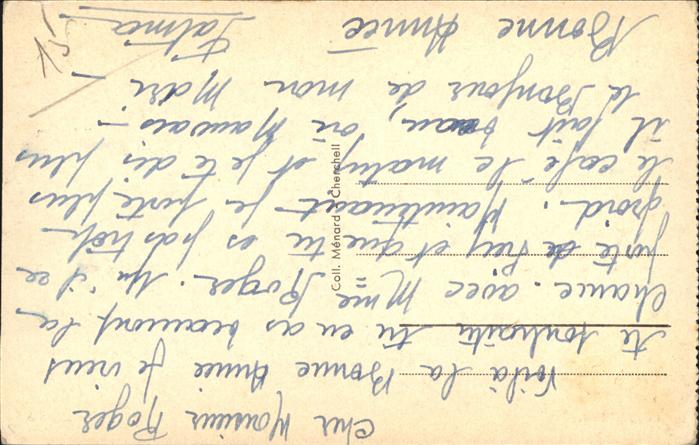 Cher Monsieur Roger
Voilà la Bonne Année je viens
te souhaité tu en as beaucoup la
chance avec Mme Roger. 
porté de et que tu es pas trop
froid. Maintenant je porté plus
le café le matin et je te dis plus
il fait beau, où Mauvais —
le Bonjour de mon Mari —
Bonne Année
Fatma
15
Coll. Ménard - Cherchell